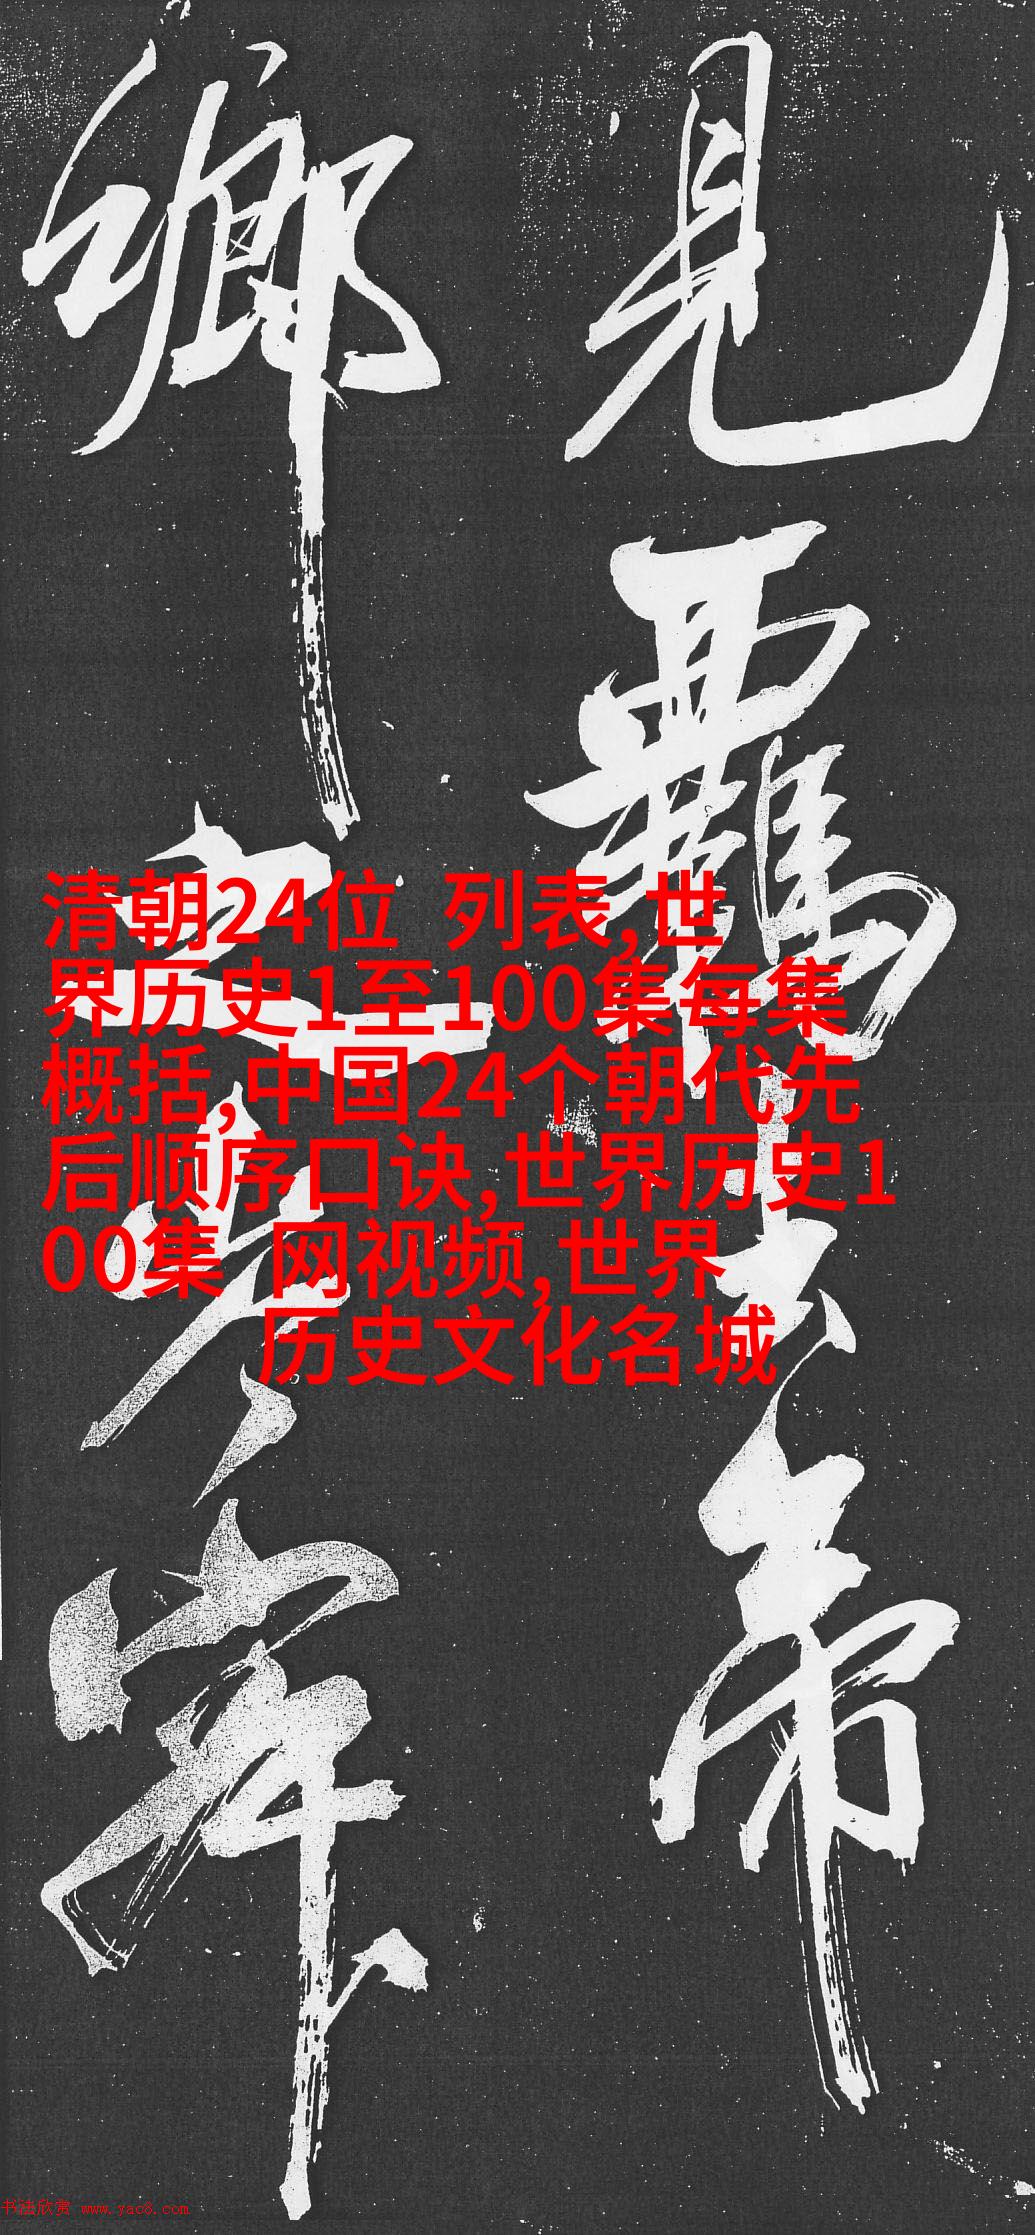 見
鄉之
清朝24位 列表,世
界历史1至100集每集
概括,中国24个朝代先
后顺序口诀,世界历史1
00集 网视频,世界
历史文化名城
书法欣赏 www.yac8.com